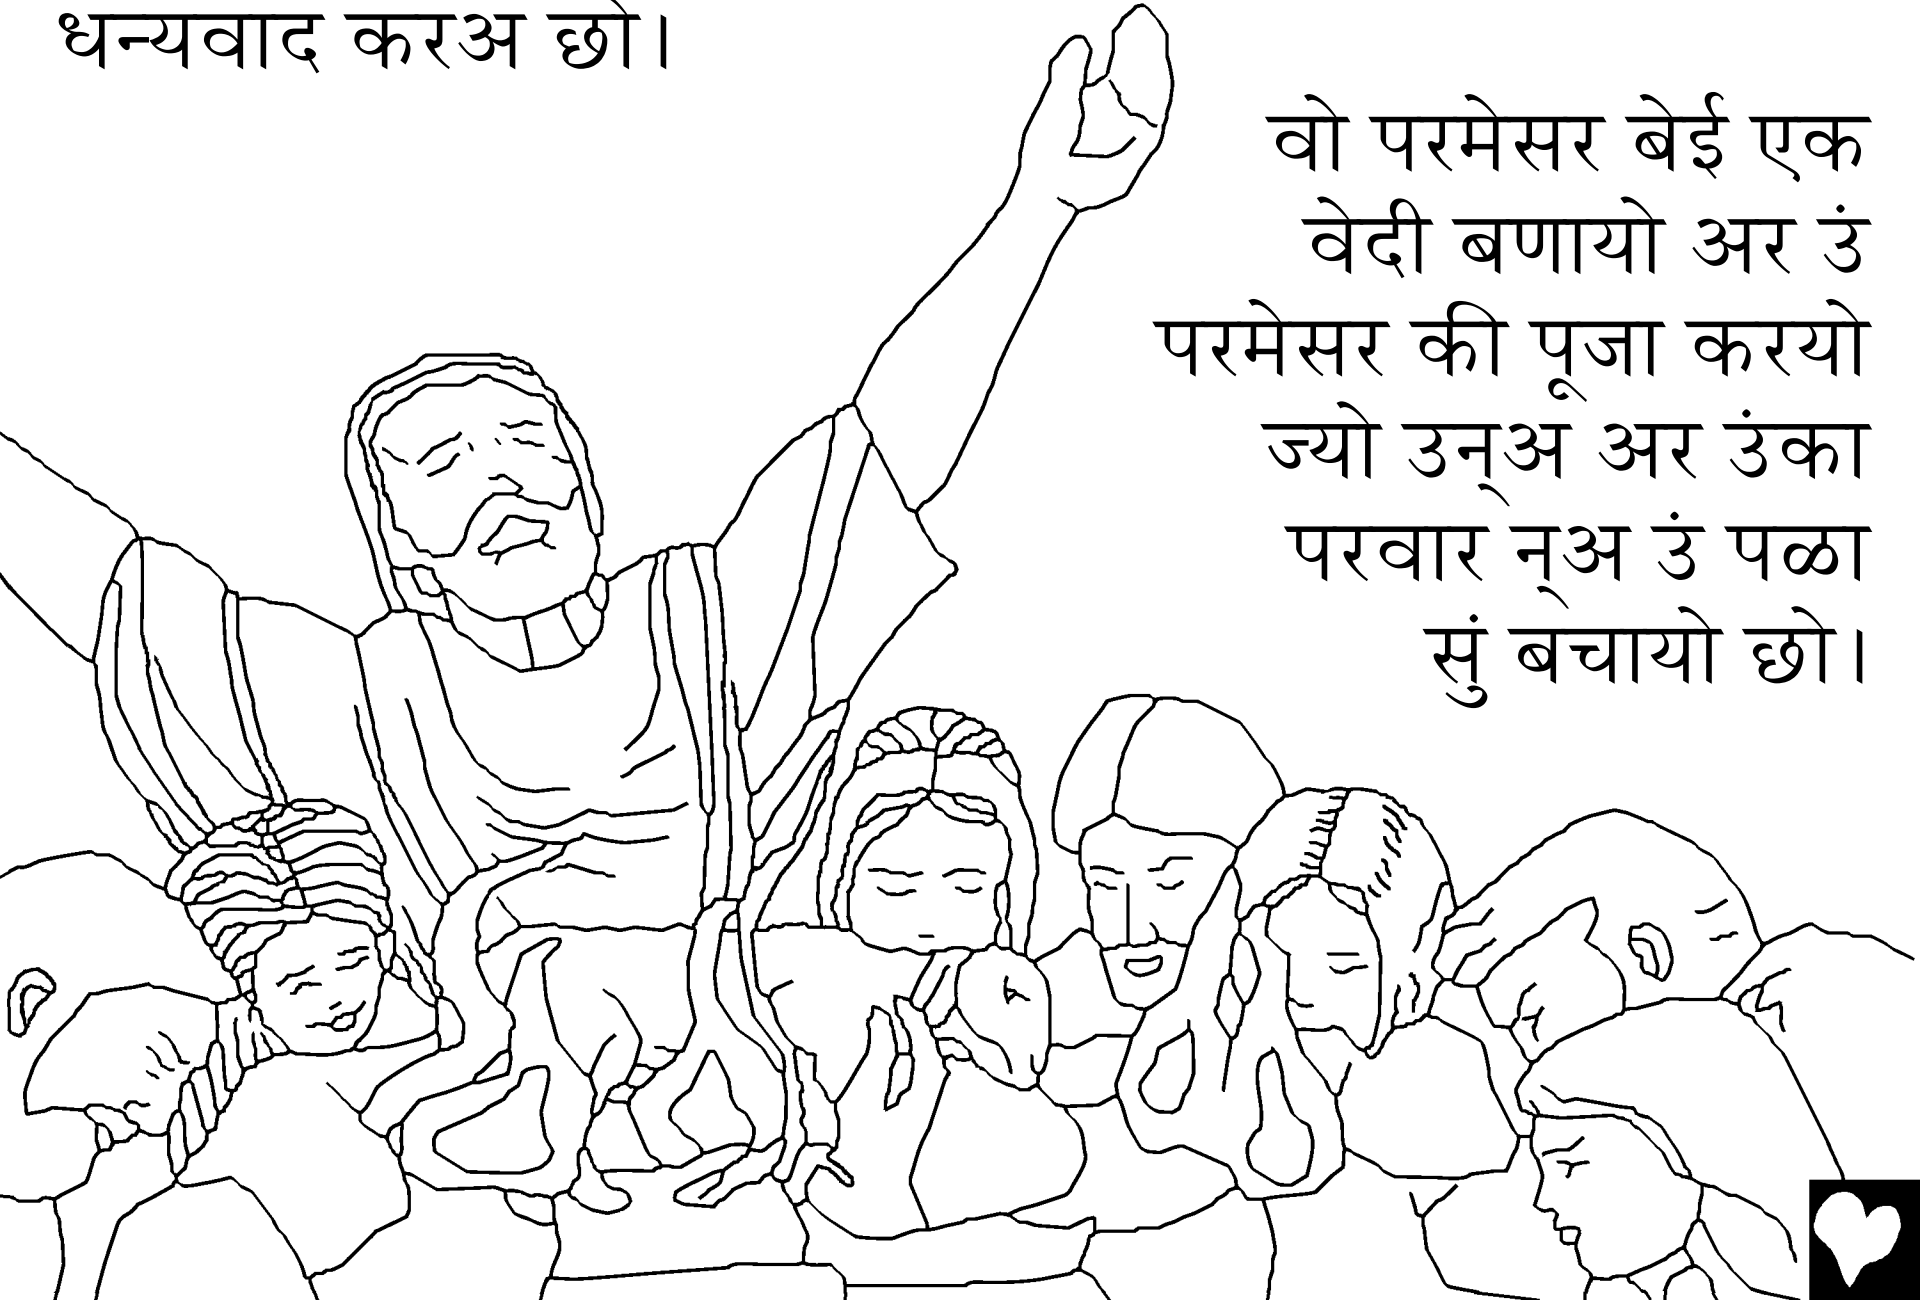 धन्यवाद करअ छो।
वो परमेसर बेई एक
वेदी बणायो अर उं
परमेसर की पूजा करयो
ज्यो उन्अ अर उंका
परवार न्अे उं पळा
सुं बे़चायो छो।